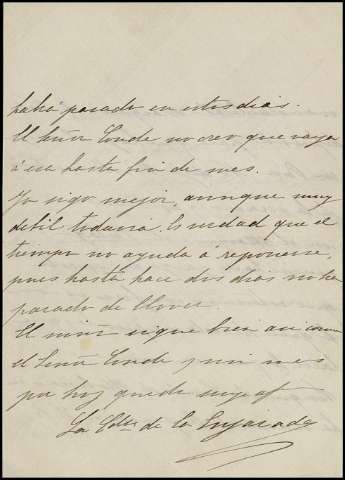 habrá pasado en estos dias.
El Señor Conde no creo que vaya
á esa hasta fin de mes.
Yo sigo mejor, aunque muy
debil todavia. Es verdad que el
tiempo no ayuda á reponerse,
pues hasta hace dos dias no ha
parado de llover.
El niño sigue bien asi como
el Señor Conde y sin mas
por hoy queda suya af
La Cdsa de la Ensenada